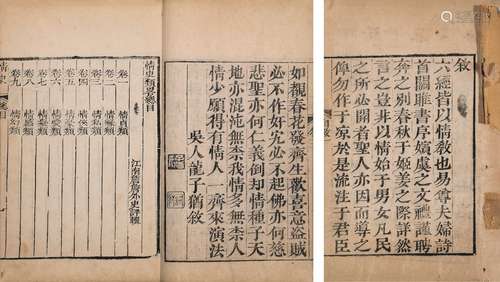 敘
六經皆以情教也易尊夫婦詩
首關雎書序嬪虞之文禮謹聘
奔之別春秋於姬姜之際詳然
言之豈非以情始于男女凡民
之所必開者聖人亦因而導之
俾勿作于涼於是流注于君臣
如觀春花發齊生歡喜意盜賊
必不作奸宄必不起佛亦何慈
悲聖亦何仁義倒却情種子天
地亦混沌無柰我情多無柰人
情少願得有情人一齊來演法
吳人龍子猶敘
情史類畧總目
江南詹詹外史評輯
卷一 情貞類
卷二 情緣類
卷三 情私類
卷四 情俠類
卷五 情豪類
卷六 情愛類
卷七 情癡類
卷八 情感類
卷九 情幻類